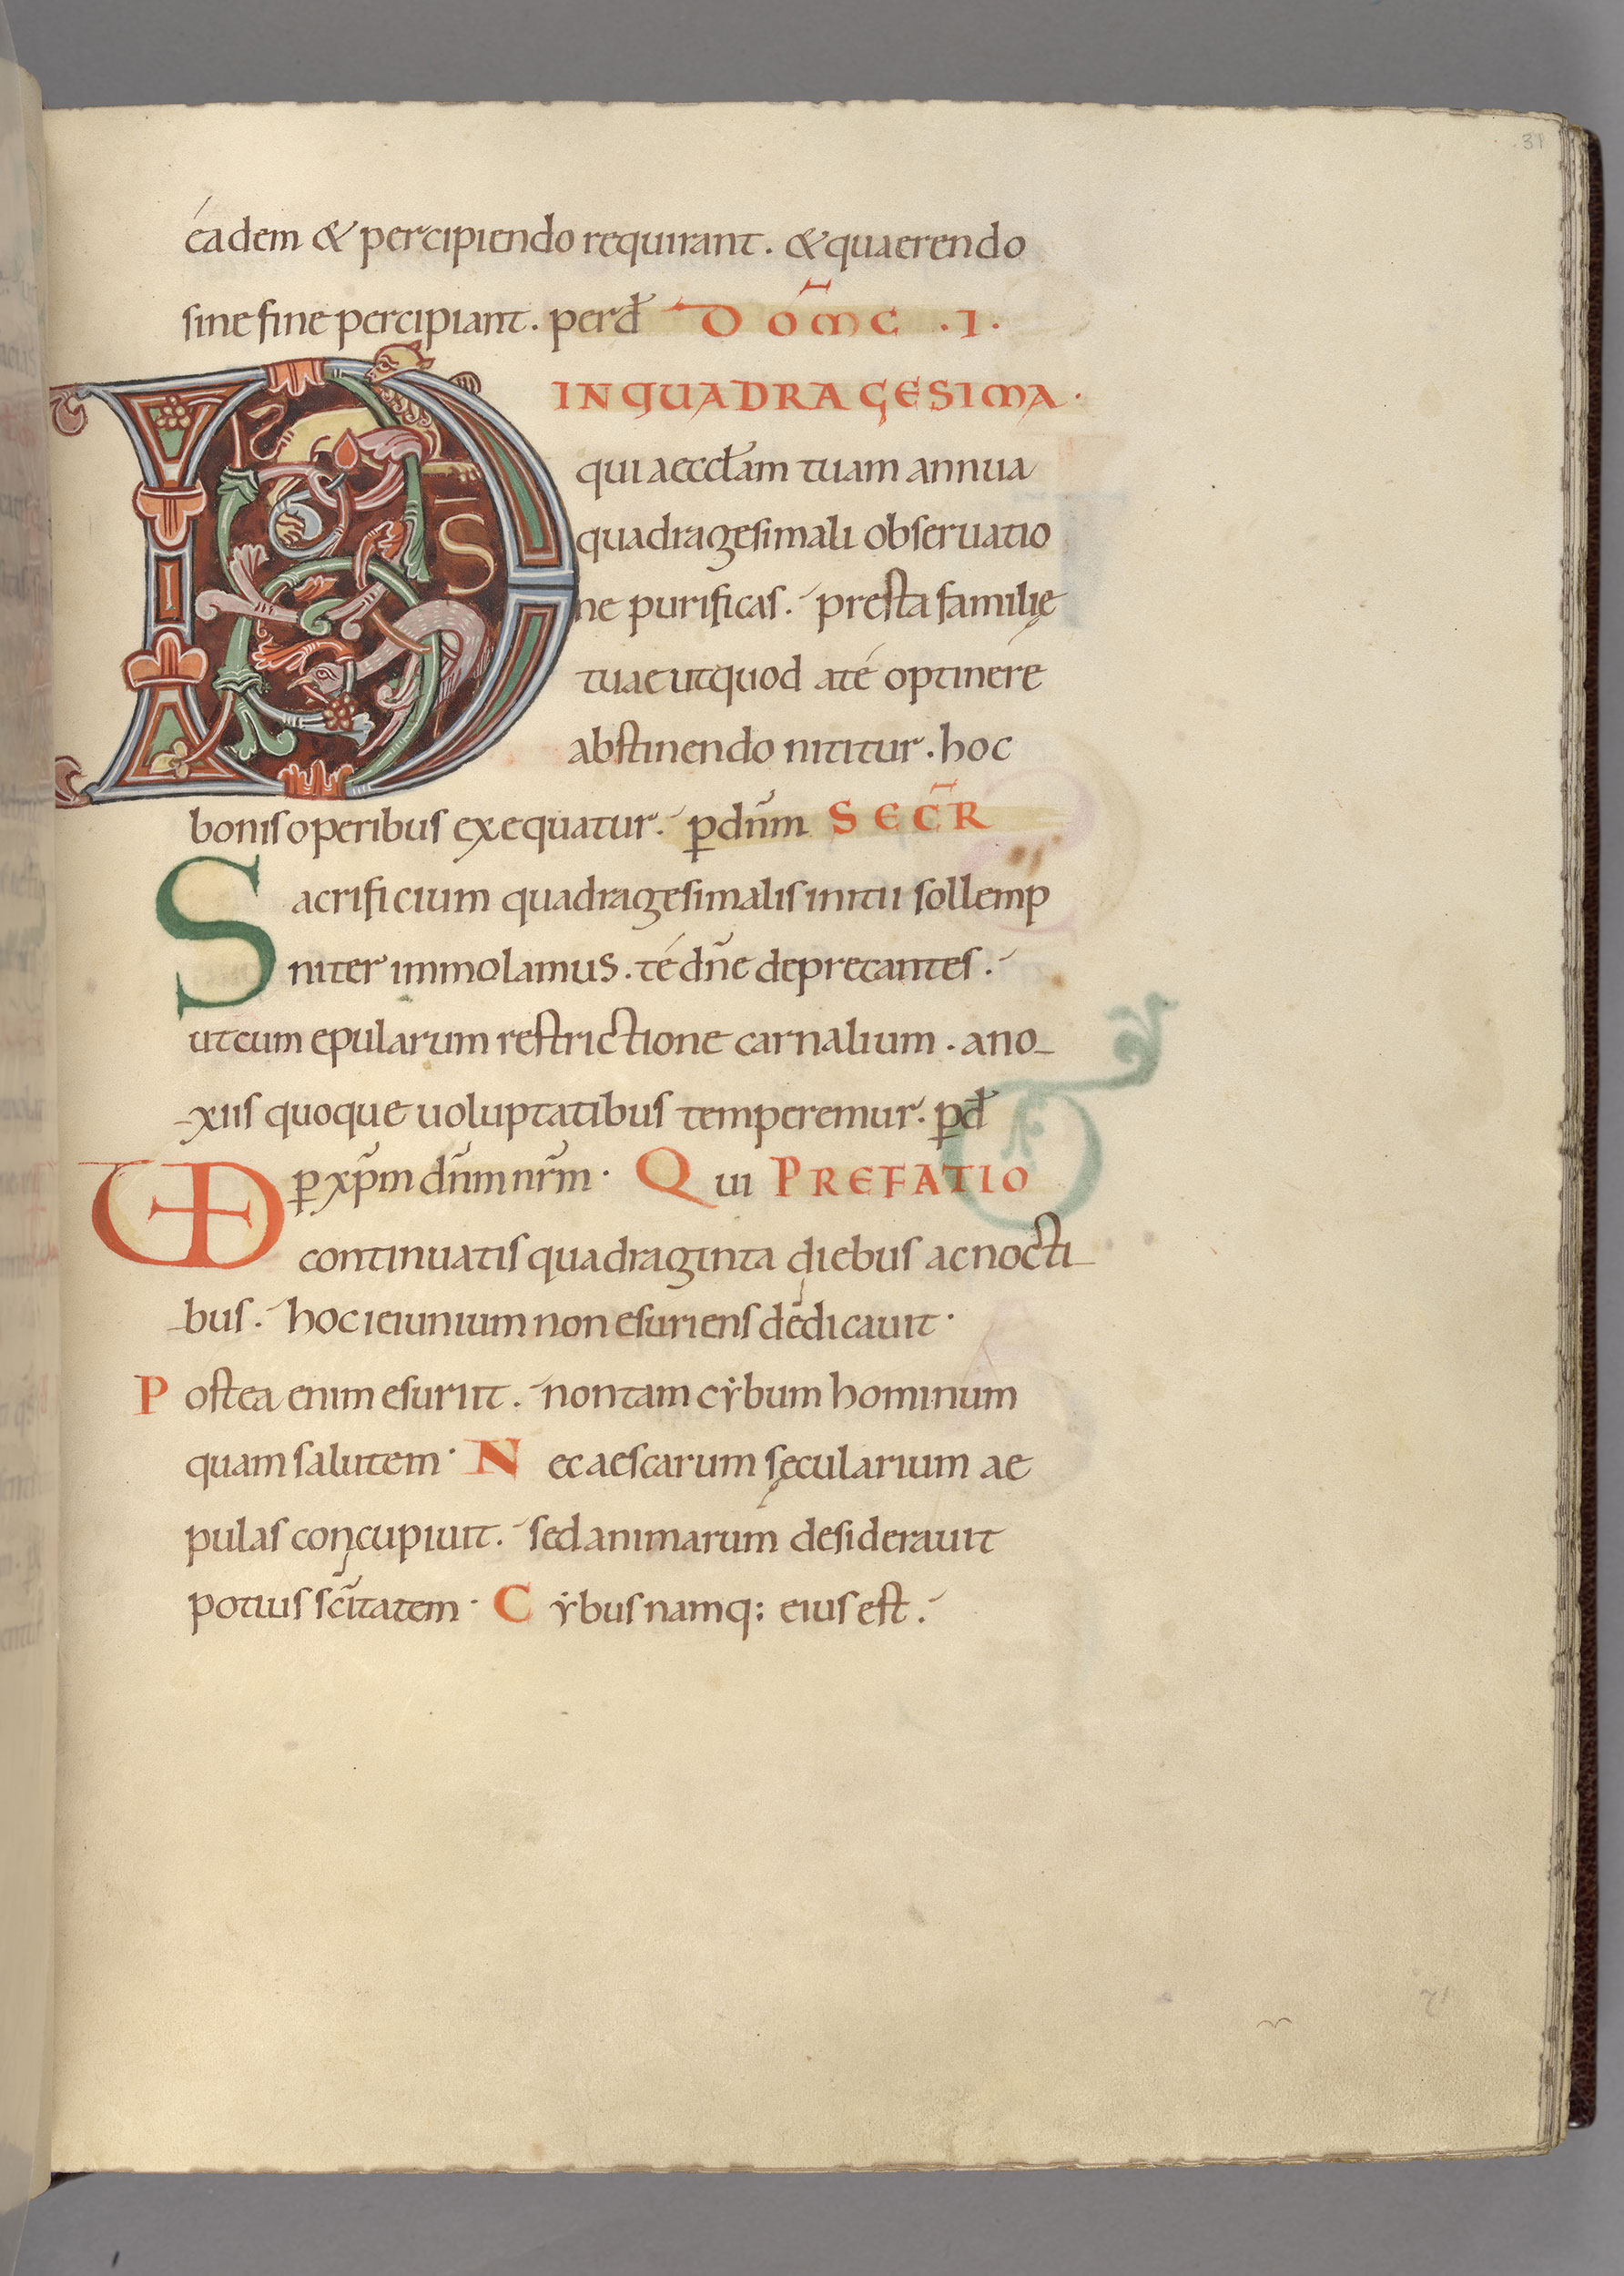 31
éadem & percipiendo requirant. & quaerendo
sine fine percipiant. perd̄ DOM̄C .I.
IN QUADRAGESIMA.
DS̄ qui aeccl̄am tuam annua
quadragesimali obseruatio
ne purificas. presta familię
tuae ut quod a té optinere
abstinendo nititur. hoc
bonis operibus exequatur. p̱ dnm̄ SECR̄
Sacrificium quadragesimalis initii sollemp
niter immolamus. té dn̄e deprecantes.
ut cum epularum restrictione carnalium. a no-
-xiis quoque uoluptatibus temperemur. p̱d̄
UD p̱ xp̄m dn̄m nr̄m. Qui PREFATIO
continuatis quadraginta diebus ac nocti-
-bus. hoc ieiunium non esuriens dedicauit.
Postea enim esuriit. non tam cẏbum hominum
quam salutem. Nec aescarum sęcularium ae
pulas concupiuit. sed animarum desiderauit
potius sc̄itatem. Cẏbus namq; eius est.